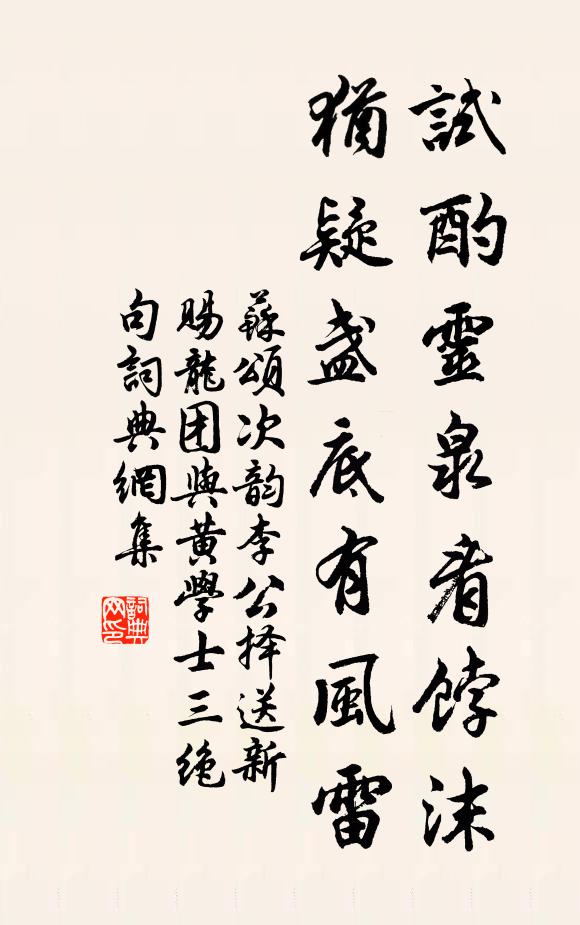 試酌靈泉看餑沫
猶疑盞底有風雷
蘇頌次韵李公择送新
賜龍团與黄學士三绝
句詞典網集
詞典网印